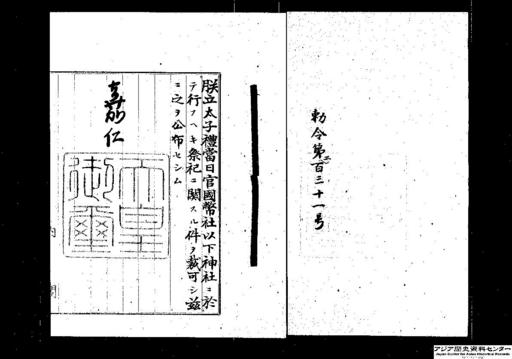 勅令第二百三十一号
朕立太子禮當日官國幣社以下神社ニ於
テ行フヘキ祭祀ニ関スル件ヲ裁可シ茲
ニ之ヲ公布セシム
嘉仁
天皇御璽
内閣
アジア歴史資料センター
Japan Center for Asian Historical Records